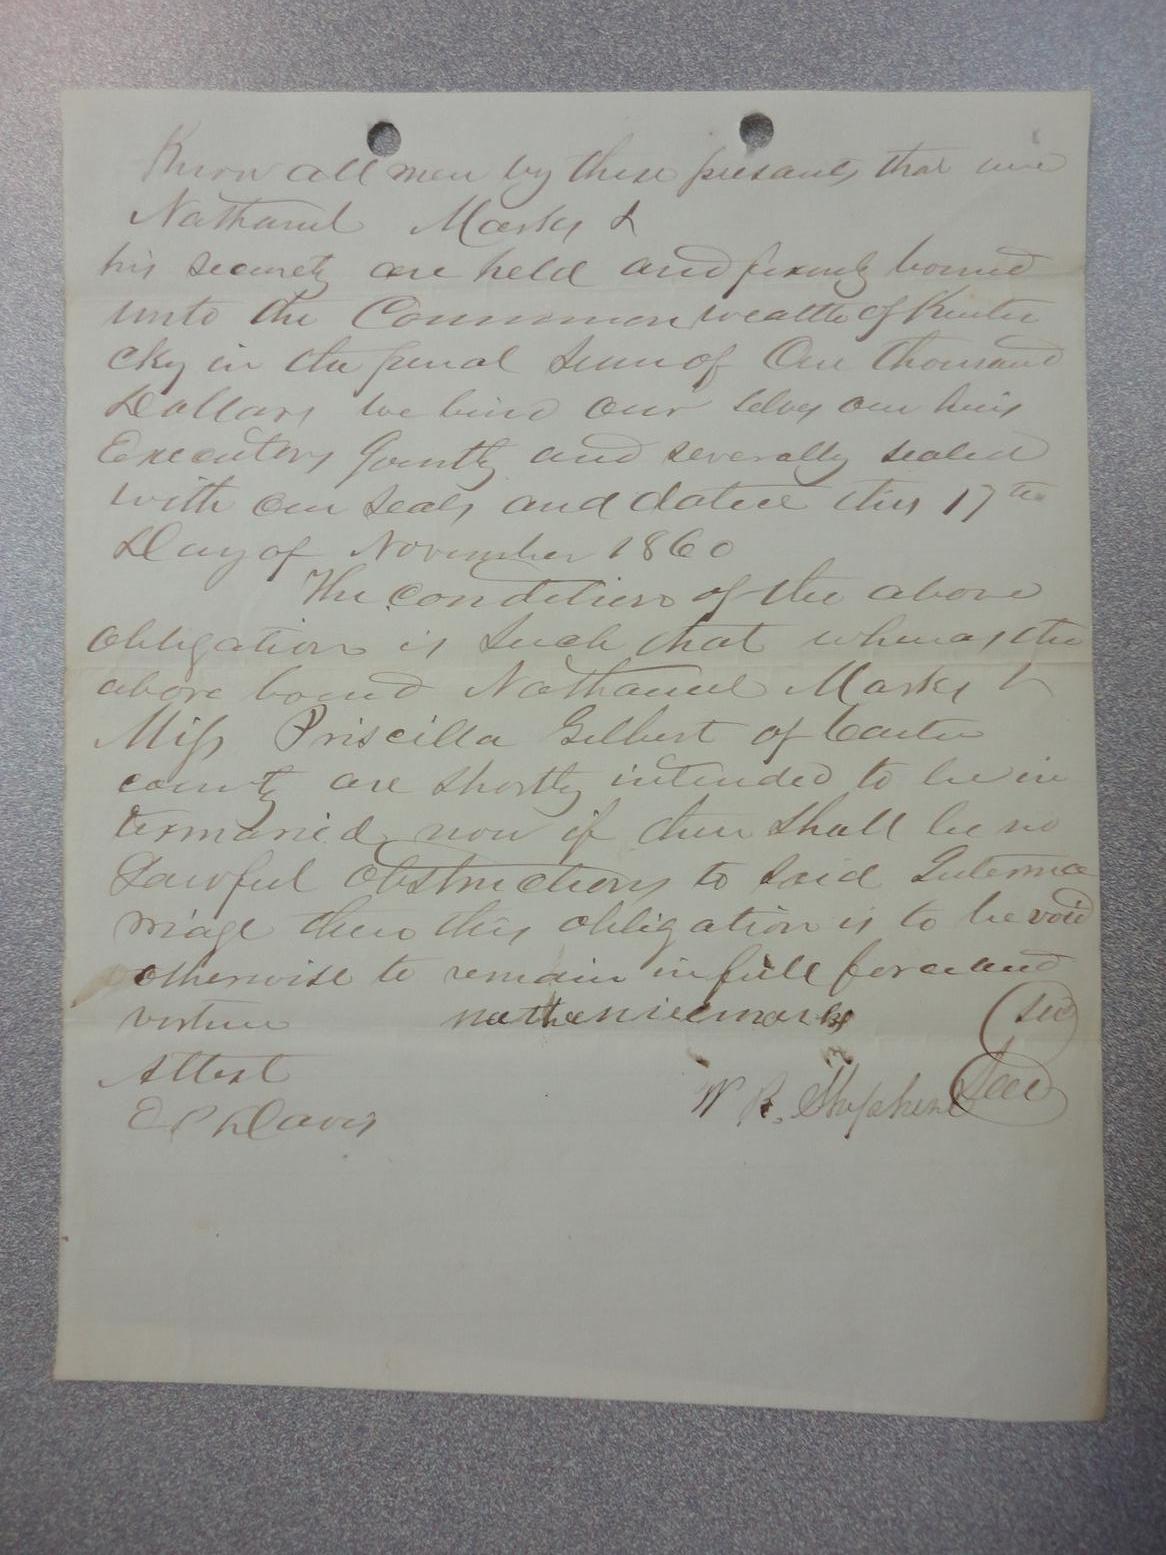 Know all men by these presants, that we
Nathaniel Marks &
his security are held and firmly bound
unto the Commonwealth of Kentu
cky in the penal Sum of One thousand
Dollars we bind our selves our heirs
Executors Jointly and severally sealed
with our seals, and dated this 17th
Day of November 1860
The condition of the above
obligation is Such that whereas the
above bound Nathaniel Marks &
Miss Priscilla Gilbert of Carter
county are shortly intended to be in
termaried, now if there Shall be no
Lawful obstructions to said Interma
riage then this obligation is to be void
otherwise to remain in full force and
virtue nathaniel marks (seal)
Attest
W R. Stephens (seal)
Davis